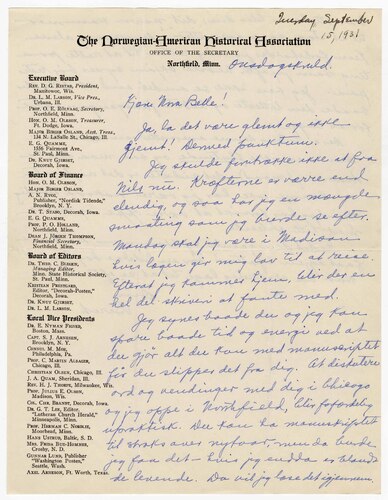 Tuesday September
15, 1931
The Norwegian-American Historical Association
OFFICE OF THE SECRETARY
Northfield, Minn.
Onsdagskveld.
Executive Board
REV. D. G. RISTAD, President,
Manitowoc, Wis.
DR. L. M. LARSON, Vice Pres.,
Urbana, Ill.
PROF. O. E. RÖLVAAG, Secretary,
Northfield, Minn.
HON. O. M. OLESON, Treasurer,
Ft. Dodge, Iowa.
MAJOR BIRGER OSLAND, Asst. Treas.,
134 N. LaSalle St., Chicago, Ill.
E. G. QUAMME,
1586 Fairmont Ave.,
St. Paul, Minn.
DR. KNUT GJERSET,
Decorah, Iowa.
Board of Finance
HON. O. M. OLESON,
MAJOR BIRGER OSLAND,
A. N. RYGG,
Publisher, "Nordisk Tidende,"
Brooklyn, N. Y.
DR. T. STABO, Decorah, Iowa.
E. G. QUAMME,
St. Paul, Minn.
PROF. P. O. HOLLAND,
Northfield, Minn.
DEAN J. JÖRGEN THOMPSON,
Financial Secretary,
Northfield, Minn.
Board of Editors
DR. THEO. C. BLEGEN,
Managing Editor,
Minn. State Historical Society,
St. Paul, Minn.
KRISTIAN PRESTGARD,
Editor, "Decorah-Posten,"
Decorah, Iowa.
DR. KNUT GJERSET,
DR. L. M. LARSON.
Local Vice Presidents
DR. E. NYMAN FIGVED,
Boston, Mass.
CAPT. S. J. ARNESEN,
Brooklyn, N. Y.
CONSUL M. MOE,
Philadelphia, Pa.
PROF. C. MARTIN ALSAGER,
Chicago, Ill.
CHRISTIAN OLSEN, Chicago, Ill.
J. A. QUAM, Sheridan, Ill.
REV. H. J. THORPE, Milwaukee, Wis.
PROF. JULIUS E. OLSON,
Madison, Wis.
COL. CHR. BRANDT, Decorah, Iowa.
DR. G. T. LEE, Editor,
"Lutheran Church Herald,"
Minneapolis, Minn.
PROF. HERMAN C. NORDLIE,
Moorhead, Minn.
HANS USTRUD, Baltic, S. D.
MRS. FRIDA BUE-HOMNES,
Crosby, N. D.
GUNNAR LUND, Publisher
"Washington Posten,"
Seattle, Wash.
AXEL ARNESON, Ft. Worth, Texas.
Kjære Nora Belle!
Ja, la det være glemt og ikke
gjemt! Dermed punktum.
Jeg skulde foretrække ikke at faa
Nils nu. Kræfterne er værre end
elendig, og saa har jeg en mængde
smaating som jeg burde se efter.
Mandag skal jeg være i Madison
hvis lægen gir mig lov til at reise.
Efterat jeg kommer hjem, blir der en
hel del skriveri at fante med.
Jeg synes baade du og jeg kan
spare baade tid og energi ved at
du gjør alt du kan med manuskriptet
før du slipper det fra dig. At diskutere
ord og vendinger med dig i Chicago
og jeg oppe i Northfield, blir forfærdelig
upraktisk. Du kan ha manuskriptet
til straks over nytaar, men da burde
jeg faa det - hvis jeg endda er blandt
de levende. Da vil jeg læse det igjennem,